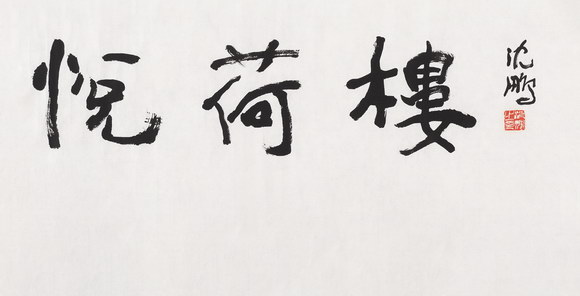 悦荷樓
沈鵬